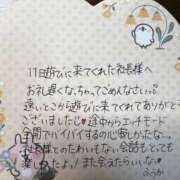 11日遊びに来てくれた社長様へ
お礼遅くなっちゃってごめんなさい。
遠いとこから遊びに来てくれてありがとう
ございました♡途中からエッチモード
全開でバイバイするの心惜しかったな…
社長様とのたわいもない会話もとても
楽しかったよ!また会えたらいいな♡
ふうか